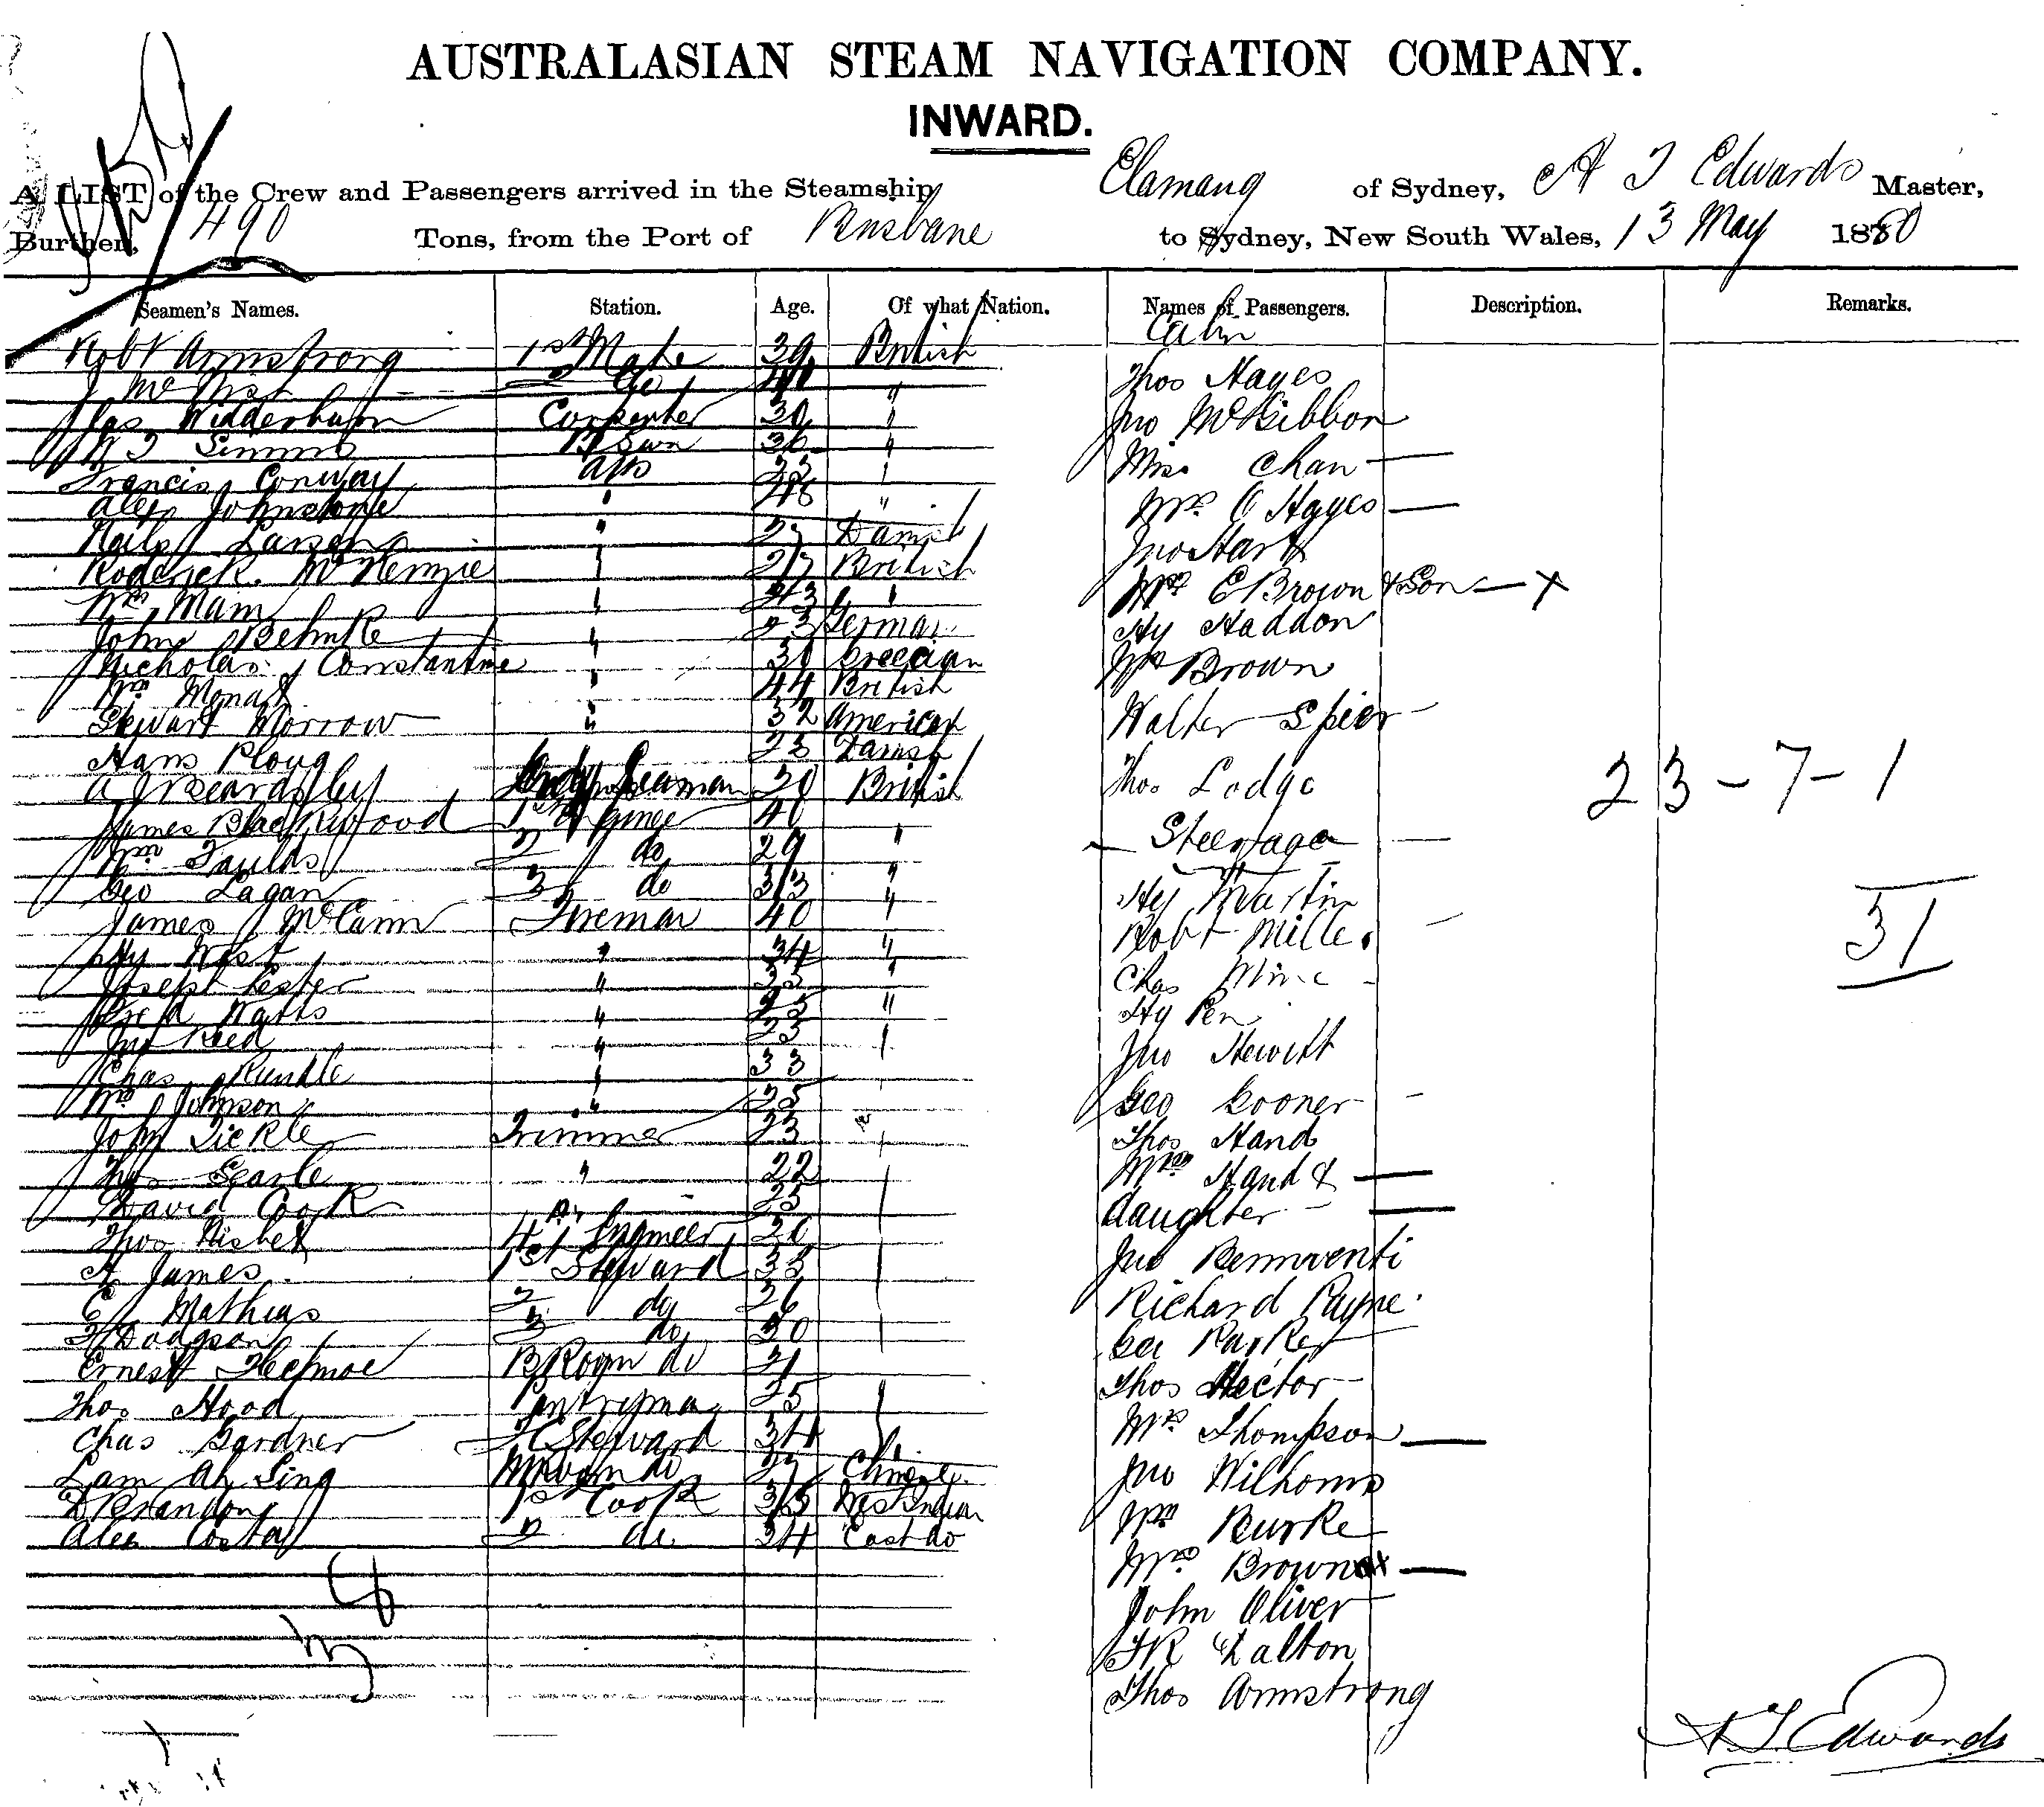 AUSTRALASIAN STEAM NAVIGATION COMPANY.
INWARD.
A LIST of the Crew and Passengers arrived in the Steamship Elamang of Sydney, A T Edwards Master,
Burthen, 490 Tons, from the Port of Brisbane to Sydney, New South Wales, 13 May 1880
Seamen's Names. Station. Age. Of what Nation. Names of Passengers. Description. Remarks.
Robt Armstrong 1st Mate 39 British
2 do "
Carpenter 30 "
W T Simms B Swn 36 "
Francis Conway AB
Alex Johnstone " "
Larsen " 27 Danish
Roderick McKenzie " 27 British
Wm Mam " 43 "
John Behnke " 23 German
Nicholas Constantine " 30 Grecian
Wm Monat " 44 British
Stewart Morrow " 32 American
Hans Ploug 23 Danish
A J Beardsley Seaman 20 British
James Blackwood 1st Enginee 40
Wm Faulds 2 do 29 "
Geo Lagan 3 do 33 "
James McCann Fireman 40 "
Hy West " 34 "
Joseph Lester " 33 "
Fred Watts " 25 "
Jno Reed " 23
Chas Rundle " 33
Wm Johnson " 25
John Tickle Trimmer 23
Thos Searle " 22
David Cook 25
Thos Nisbet 4th Engineer 26
A James 1st Steward 33
C Mathias 2 do 26
F Dodgson 3 do 30
Ernest B Room do 21
Thos Hood Pantryman 25
Chas Gardner F C Steward 34
Lam Ah Sing do 27 Chinese
1st Cook 35 West Indian
Alex Costa 2 do 34 East do
Cabin
Thos Hayes
Jno McGibbon
Miss Chan —
Mrs O Hayes —
Jno Hart
Mrs E Brown & Son — x
Hy Haddon
Wm Brown
Walter Spier
Thos Lodge
Steerage —
Hy Martin
Robt Mille
Chas
Hy Pen
Jno Hewitt
Geo Gooner
Thos Hand
Mrs Hand & —
daughter —
Jno Bennventi
Richard Payne
Geo Parker
Thos Hector
Mrs Thompson —
Jno Wilhoms
Wm Burke
Mrs Brown —
John Oliver
F R Dalton
Thos Armstrong
23 - 7 - 1
31
A T Edwards